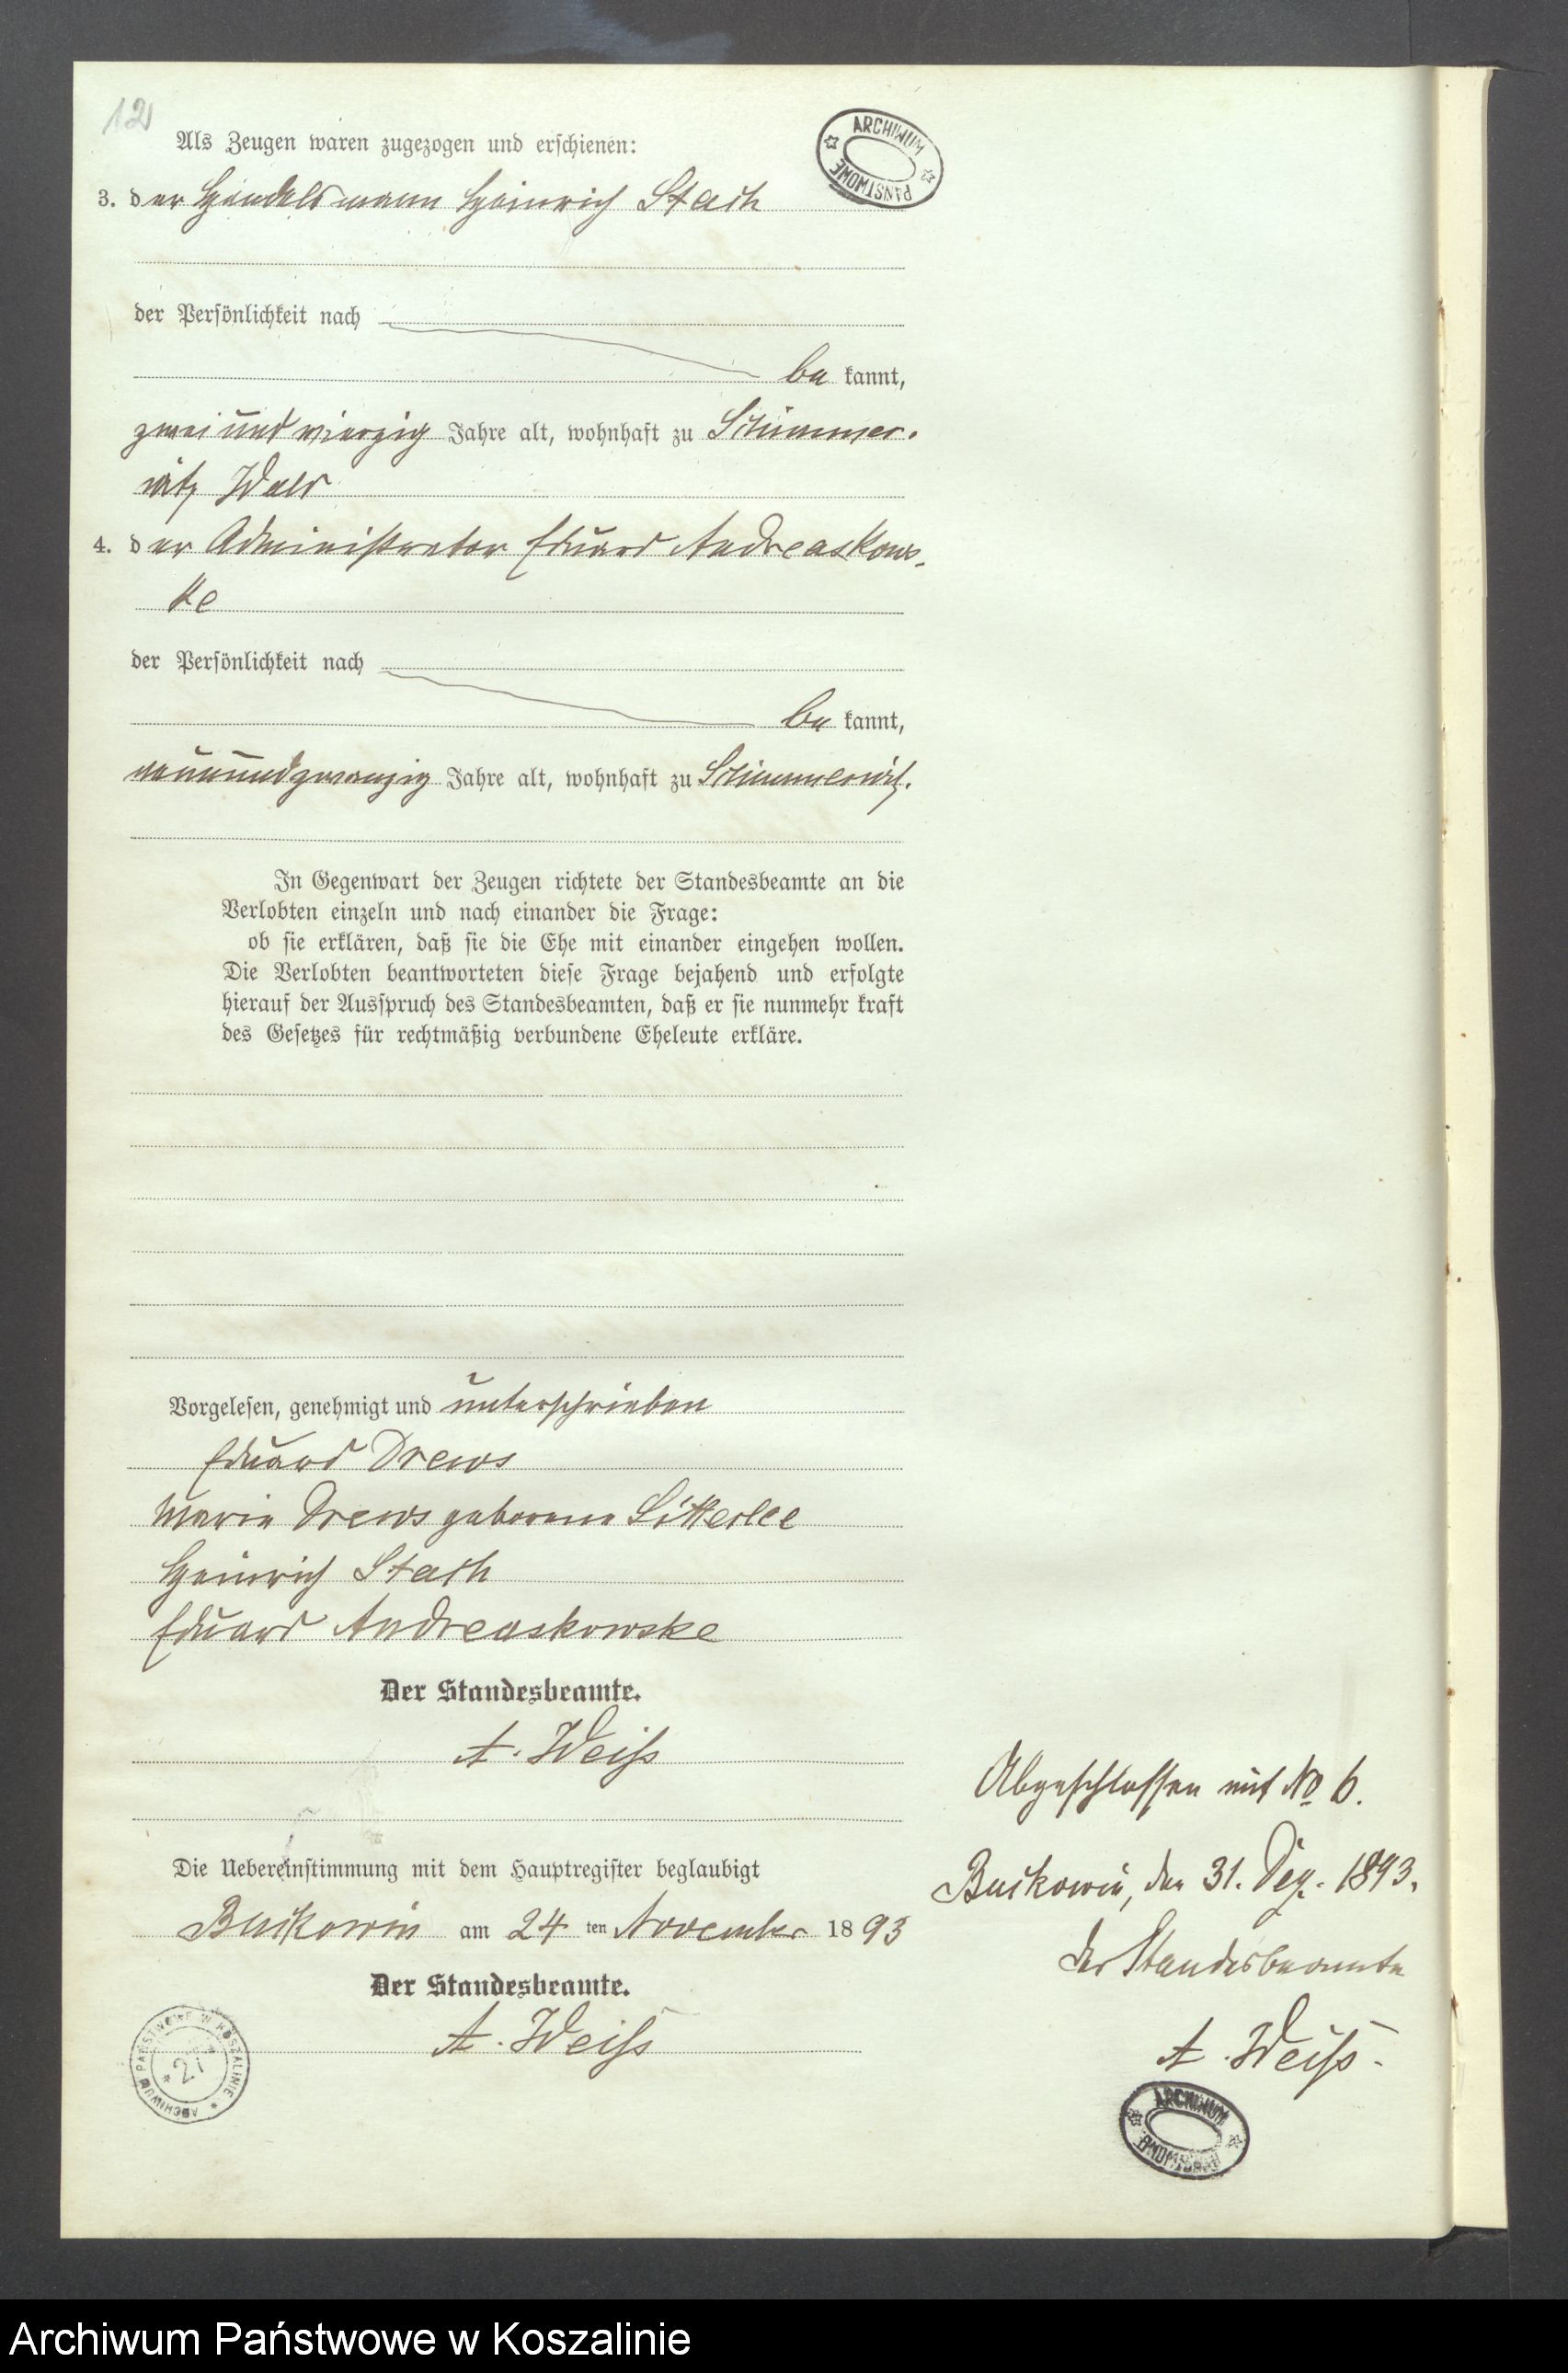 12
Als Zeugen waren zugezogen und erschienen:
3. der Handelsmann Heinrich Stach
der Persönlichkeit nach
be kannt,
zweiundvierzig Jahre alt, wohnhaft zu Schimmer-
witz Wald
4. der Administrator Eduard Andreaskows-
ke
der Persönlichkeit nach
be kannt,
neunundzwanzig Jahre alt, wohnhaft zu Schimmerwitz.
In Gegenwart der Zeugen richtete der Standesbeamte an die
Verlobten einzeln und nach einander die Frage:
ob sie erklären, daß sie die Ehe mit einander eingehen wollen.
Die Verlobten beantworteten diese Frage bejahend und erfolgte
hierauf der Ausspruch des Standesbeamten, daß er sie nunmehr kraft
des Gesetzes für rechtmäßig verbundene Eheleute erkläre.
Vorgelesen, genehmigt und unterschrieben
Eduard Drews
Marie Drews geborene
Heinrich Stach
Eduard Andreaskowske
Der Standesbeamte.
A. Weiß
Die Uebereinstimmung mit dem Hauptregister beglaubigt
Buckowin am 24 ten November 18 93
Der Standesbeamte.
A. Weiß
Abgeschlossen mit No 6.
Buckowin, den 31. Dez. 1893.
Der Standesbeamte
A. Weiß.
ARCHIWUM PAŃSTWOWE
ARCHIWUM PAŃSTWOWE W KOSZALINIE
27
ARCHIWUM PAŃSTWOWE
Archiwum Państwowe w Koszalinie